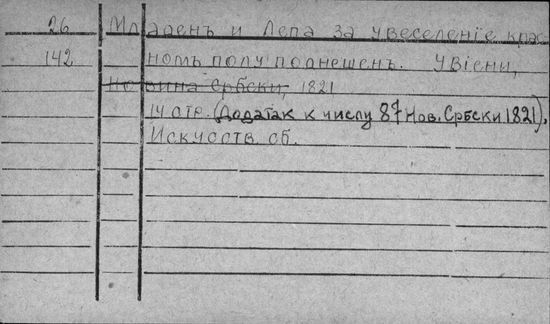 26 Младенъ и Лепа за увеселенiе крас
142 номъ полу поднешенъ. У Вiени,
Новина Србски, 1821
14 стр. (Додатак к числу 87 Нов. Србски 1821),
Искусств. об.